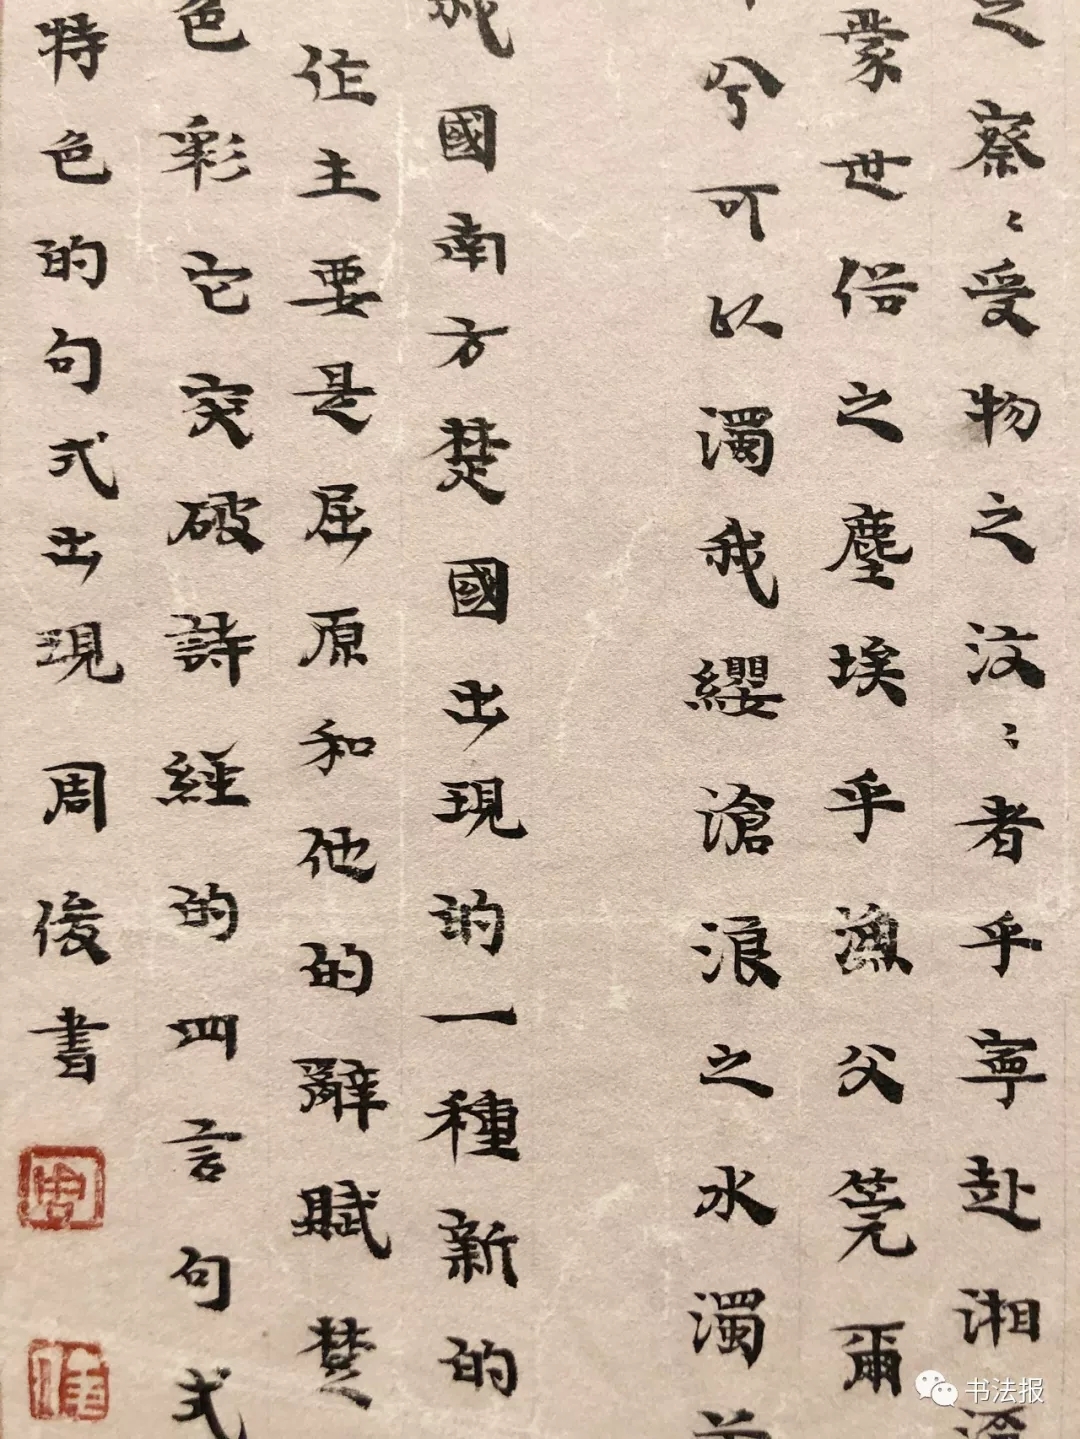 之察〻受物之汶〻者乎寧赴湘
蒙世俗之塵埃乎漁父莞爾
兮可以濁我纓滄浪之水濁
我國南方楚國出現的一種新的
作主要是屈原和他的辭賦楚
色彩它突破詩經的四言句式
特色的句式出現周俊書
周
书法报